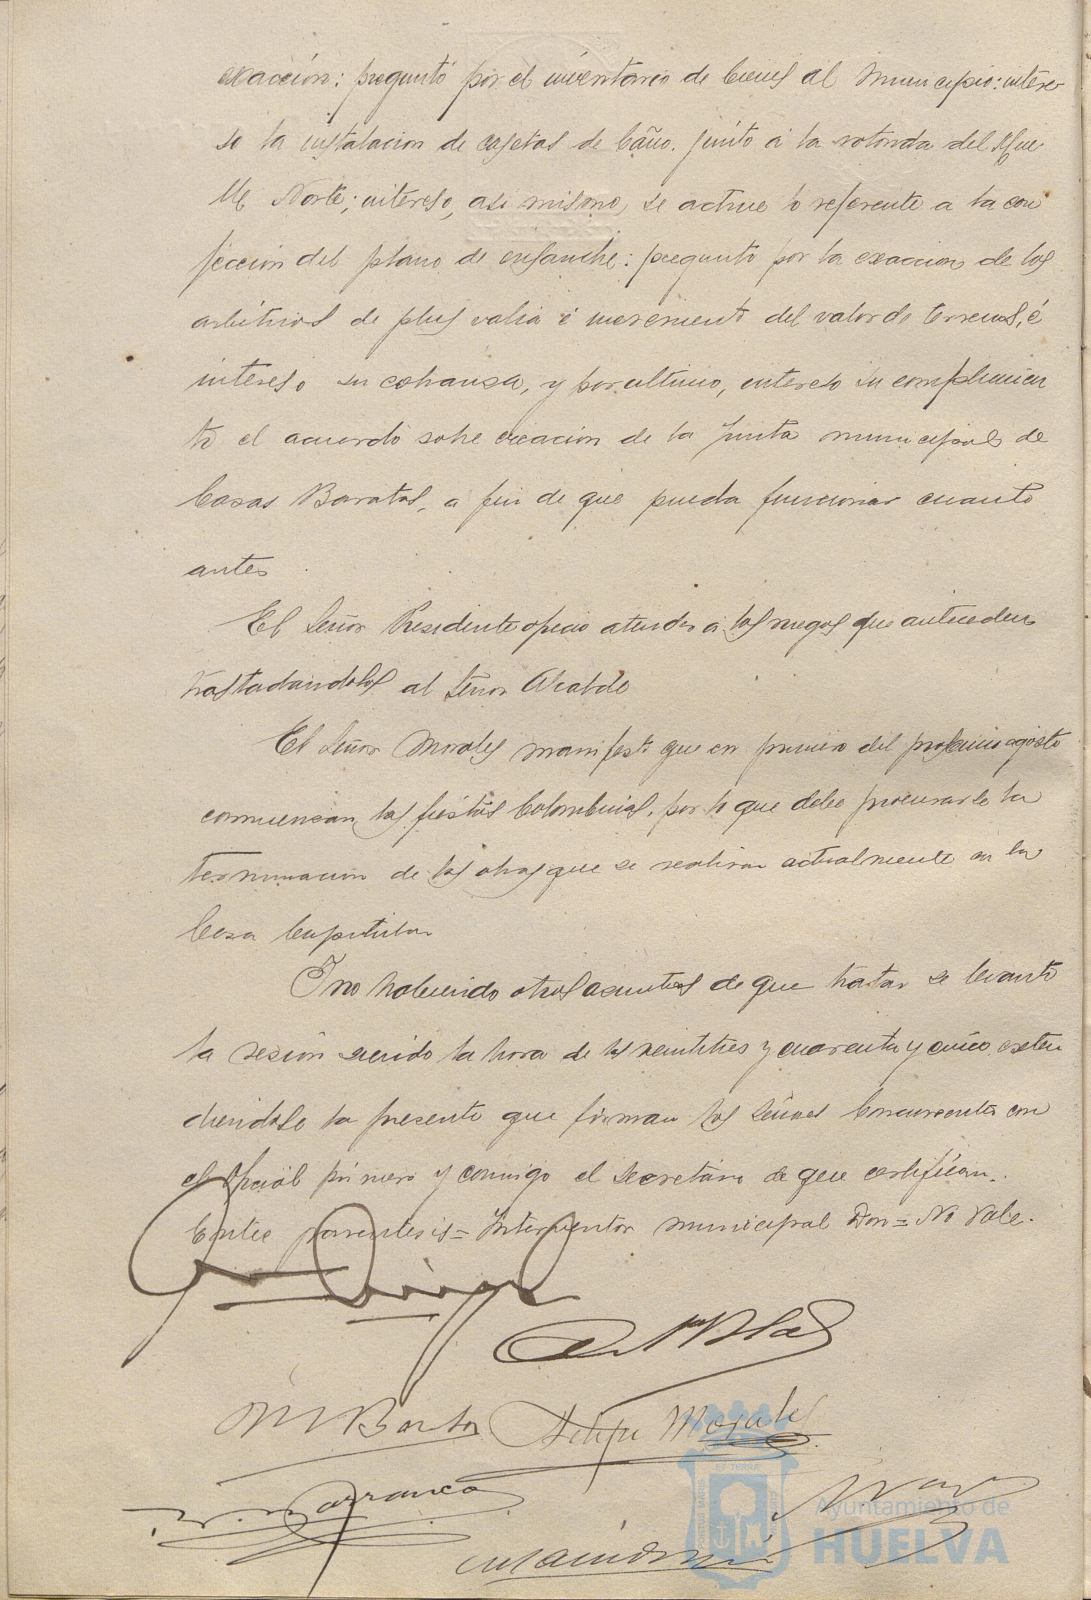 exacción: preguntó por el inventario de bienes al Municipio: intere-
só la instalación de casetas de baño junto á la rotonda del Mue-
lle Norte; interesó, asi mismo, se active lo referente a la con
fección del plano de ensanche: preguntó por la exaccion de los
arbitrios de plus valia é incremento del valor de terrenos, é
interesó su cobranza, y por ultimo, intereso su cumplimien
to el acuerdo sobre creacion de la Junta municipal de
Casas Baratas, a fin de que pueda funcionar cuanto
antes
El Señor Presidente ofrecio atender a los ruegos que anteceden
trasladandolos al Señor Alcalde
El Señor Morales manifestó que en primero del proximo agosto
comienzan las fiestas Colombinas, por lo que debe procurarse la
terminacion de las obras que se realizan actualmente en la
Casa Capitular
Y no habiendo otros asuntos de que tratar se levantó
la sesión siendo la hora de las veintitres y cuarenta y cinco exten
diendose la presente que firman los Señores Concurrentes con
el Oficial primero y conmigo el Secretario de que certifican.
Entre parentesis = Interventor municipal Don = No Vale.
M Barba Felipe Morales
Barranca
ET TERRÆ
Ayuntamiento de
HUELVA